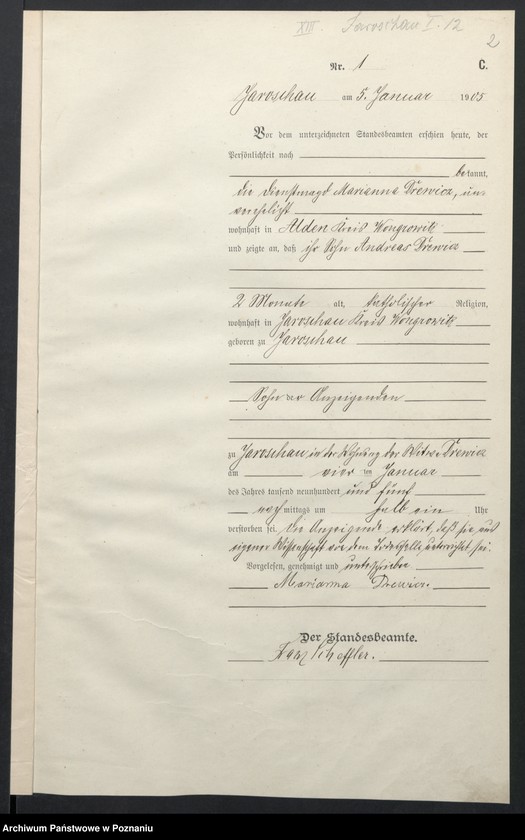 XIII. Jaroschau I-12
2
Nr. 1 C.
Jaroschau am 5. Januar 1905
Vor dem unterzeichneten Standesbeamten erschien heute, der
Persönlichkeit nach
bekannt,
die Dienstmagd Marianna Drewicz, un-
verehelicht
wohnhaft in Alden Kreis Wongrowitz
und zeigte an, daß ihr Sohn Andreas Drewicz
2 Monate alt, katholischer Religion,
wohnhaft in Jaroschau Kreis Wongrowitz
geboren zu Jaroschau
Sohn der Anzeigenden
zu Jaroschau in der Wohnung der Witwe Drewicz
am vier ten Januar
des Jahres tausend neunhundert und fünf
nachmittags um halb ein Uhr
verstorben sei. Die Anzeigende erklärt, daß sie aus
eigener Wissenschaft von dem Todesfalle unterrichtet sei.
Vorgelesen, genehmigt und unterschrieben
Marianna Drewicz.
Der Standesbeamte.
Scheffler.
Archiwum Państwowe w Poznaniu